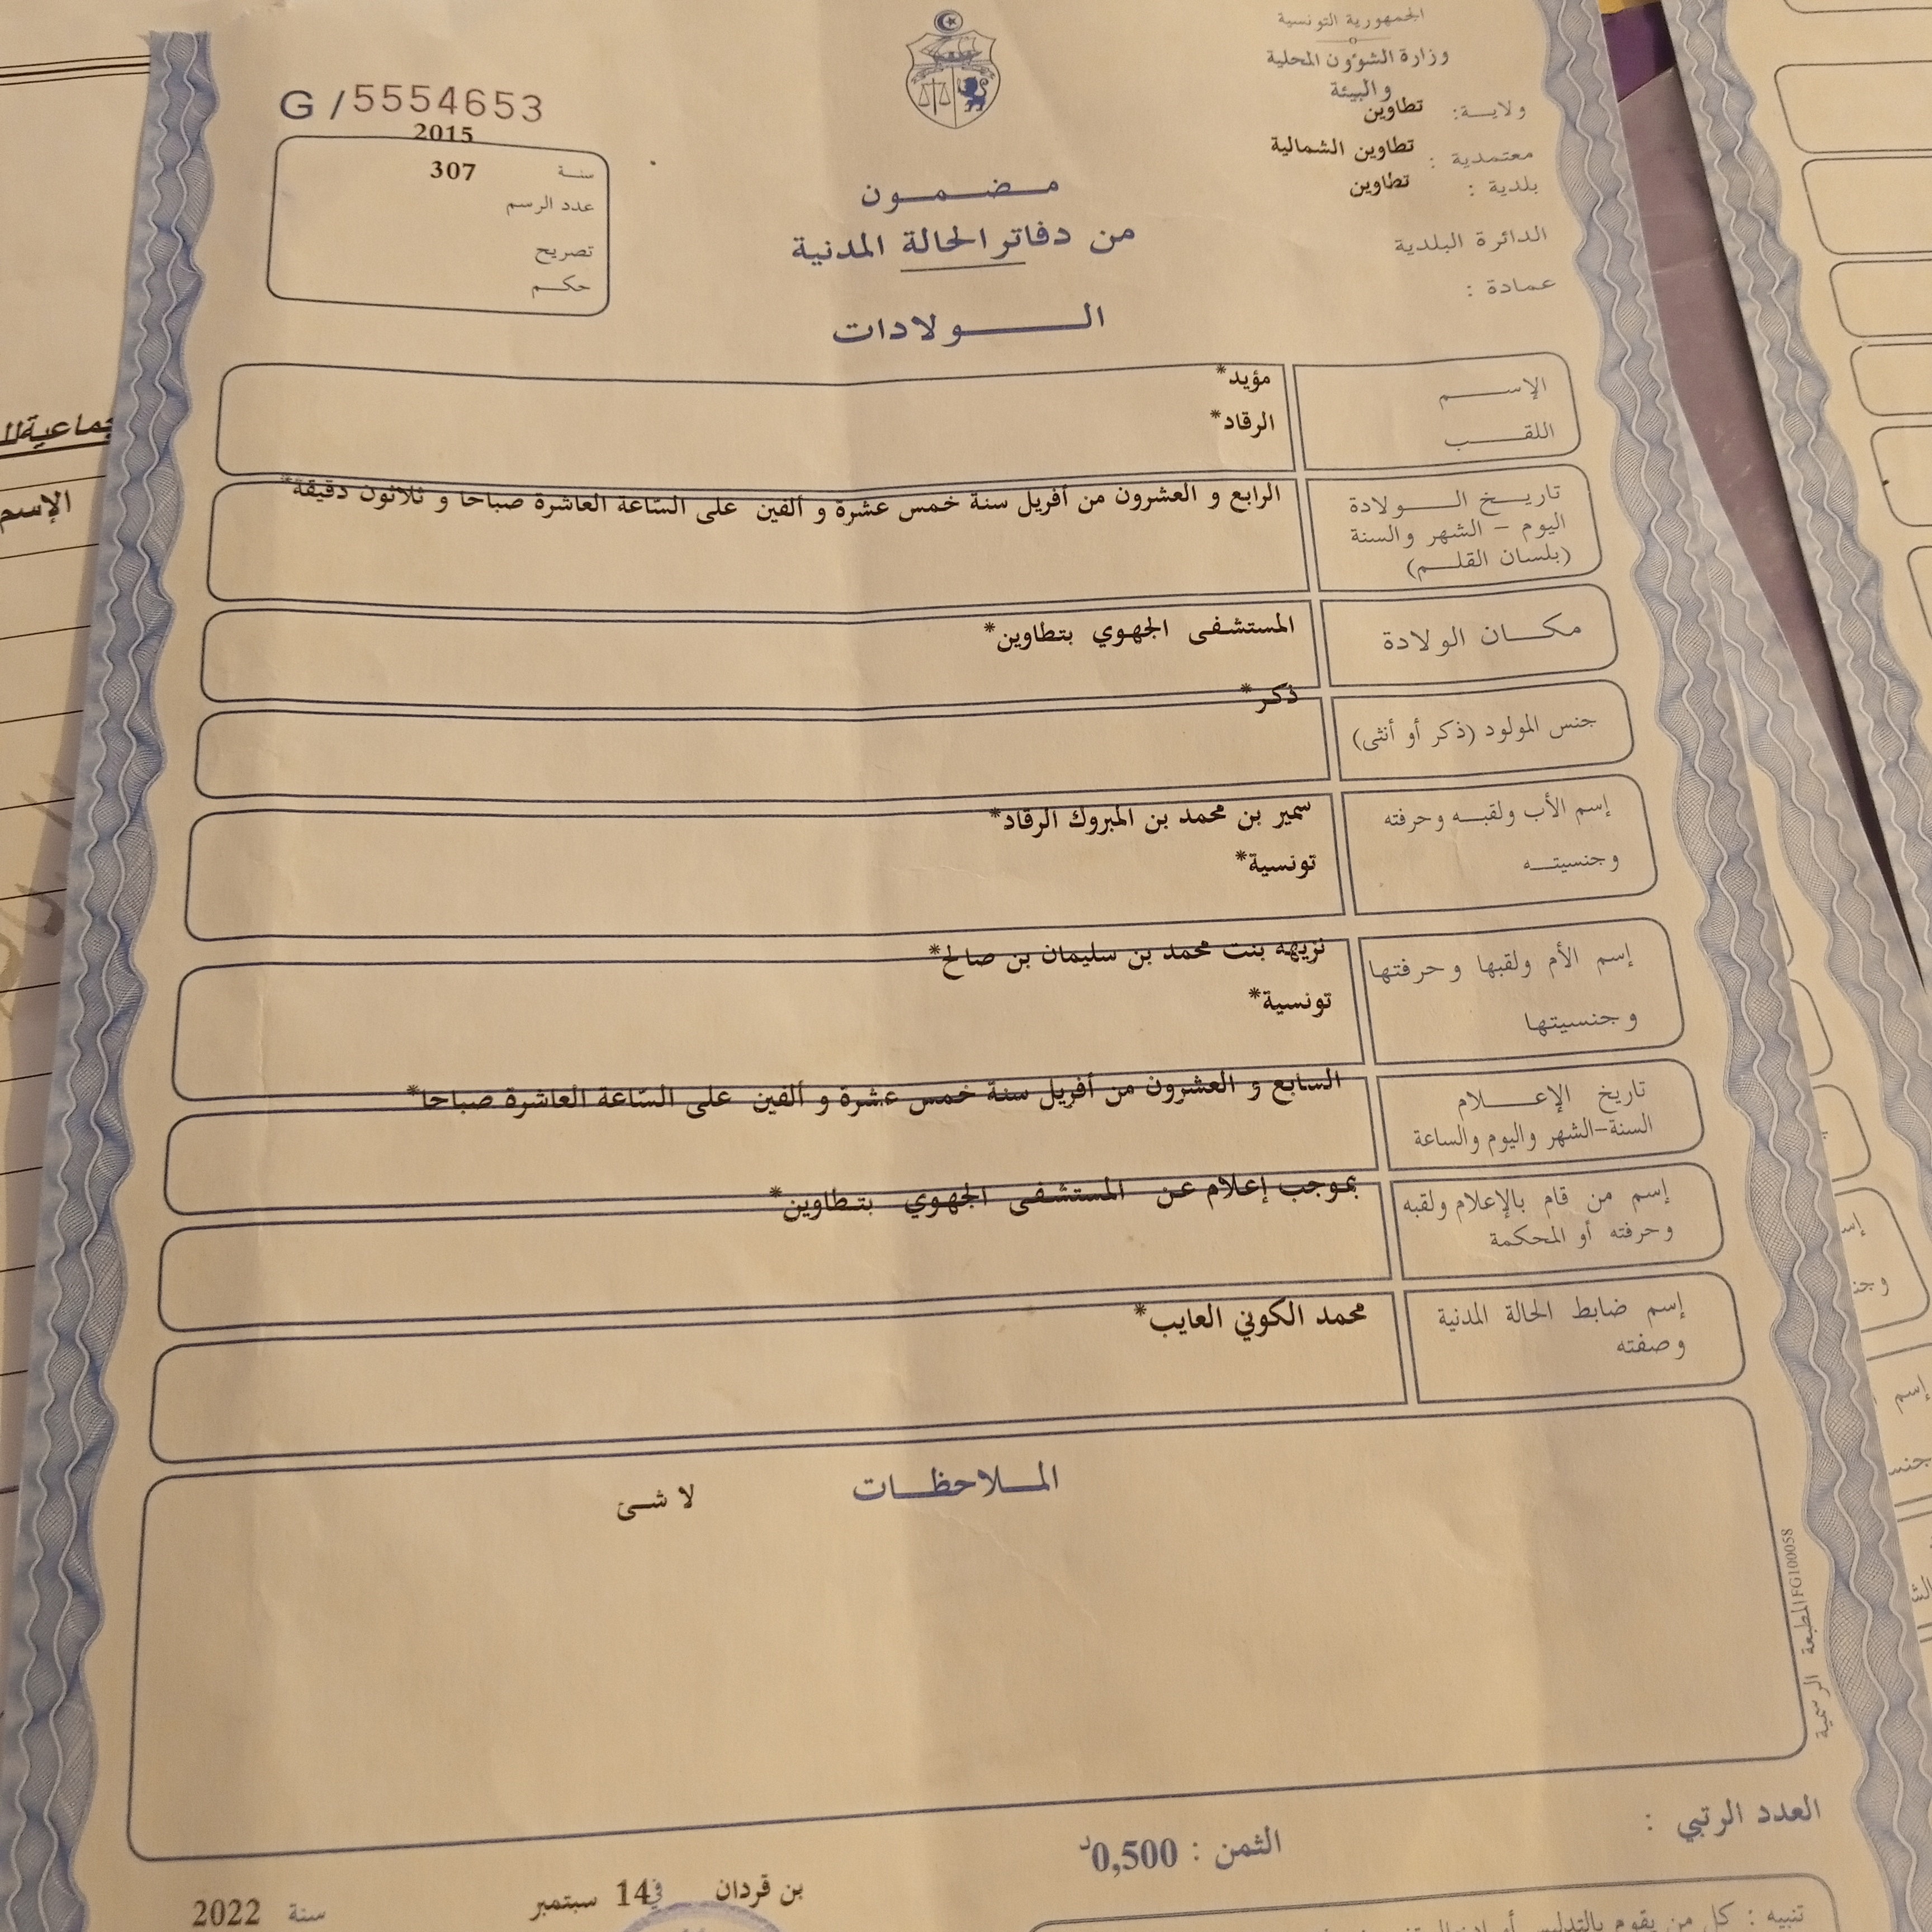 الجمهورية التونسية
وزارة الشؤون المحلية
والبيئة
ولايـــة: تطاوين
معتمدية : تطاوين الشمالية
بلدية : تطاوين
الدائرة البلدية
عمادة :
G /5554653
2015
سنة 307
عدد الرسم
تصريح
حكم
مضمون
من دفاتر الحالة المدنية
الولادات
الإسم مؤيد*
اللقب الرقاد*
تاريخ الولادة
اليوم - الشهر والسنة
(بلسان القلم)
الرابع و العشرون من أفريل سنة خمس عشرة و ألفين على السّاعة العاشرة صباحا و ثلاثون دقيقة*
مكان الولادة المستشفى الجهوي بتطاوين*
جنس المولود (ذكر أو أنثى) ذكر*
إسم الأب ولقبه وحرفته
وجنسيته
سمير بن محمد بن المبروك الرقاد*
تونسية*
إسم الأم ولقبها وحرفتها
وجنسيتها
نزيهه بنت محمد بن سليمان بن صالح*
تونسية*
تاريخ الإعلام
السنة-الشهر واليوم والساعة
السابع و العشرون من أفريل سنة خمس عشرة و ألفين على السّاعة العاشرة صباحا*
إسم من قام بالإعلام ولقبه
وحرفته أو المحكمة
بموجب إعلام عن المستشفى الجهوي بتطاوين*
إسم ضابط الحالة المدنية
وصفته
محمد الكوني العايب*
الملاحظات
لا شئ
المطبعة الرسمية FG100058
العدد الرتبي :
الثمن : 0,500د
بن قردان في 14 سبتمبر سنة 2022
تنبيه : كل من يقوم بالتدليس أو
الإسم